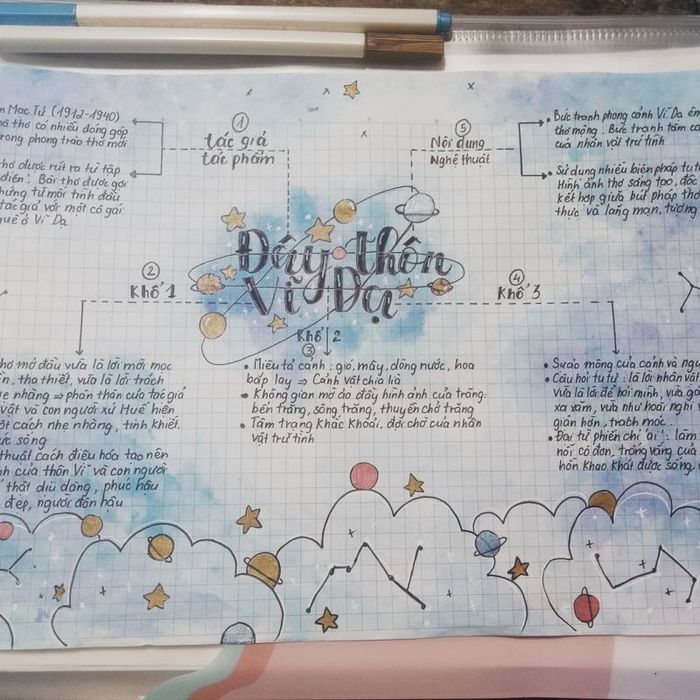 Đây thôn
Vĩ Dạ
①
tác giả
tác phẩm
n Mạc Tử (1912-1940)
hà thơ có nhiều đóng góp
rong phong trào thơ mới
hơ được rút ra từ tập
điên! Bài thơ được gợi
hứng từ mối tình đầu
tác giả với một cô gái
quê ở Vĩ Dạ
②
Khổ 1
hơ mở đầu vừa là lời mời mọc
ân, tha thiết, vừa là lời trách
nhẹ nhàng => phân thân của tác giả
vật và con người xứ Huế hiện
một cách nhẹ nhàng, tinh khiết,
sức sống
thuật cách điệu hóa tạo nên
của thôn Vĩ và con người
thật dịu dàng, phúc hậu
đẹp, người đôn hậu
Khổ 2
③
• Miêu tả cảnh: gió, mây, dòng nước, hoa
bắp lay => Cảnh vật chia lìa
• Không gian mờ ảo đầy hình ảnh của trăng:
bến trăng, sông trăng, thuyền chở trăng
• Tâm trạng khắc khoải, đợi chờ của nhân
vật trữ tình
④
Khổ 3
• Sự ảo mộng của cảnh và ngư
• Câu hỏi tu từ: là lời nhân vật
vừa là lời để hỏi mình, vừa gầ
xa xăm, vừa như hoài nghi
giận hờn, trách móc.
• Đại từ phiếm chỉ 'ai': làm
nỗi cô đơn, trống vắng của
hồn khao khát được sống,
⑤
Nội dung
Nghệ thuật
• Bức tranh phong cảnh Vĩ Dạ ên
thơ mộng. Bức tranh tâm
của nhân vật trữ tình
• Sử dụng nhiều biện pháp tu từ
Hình ảnh thơ sáng tạo, độc
kết hợp giữa bút pháp thơ
thực và lãng mạn, tượng